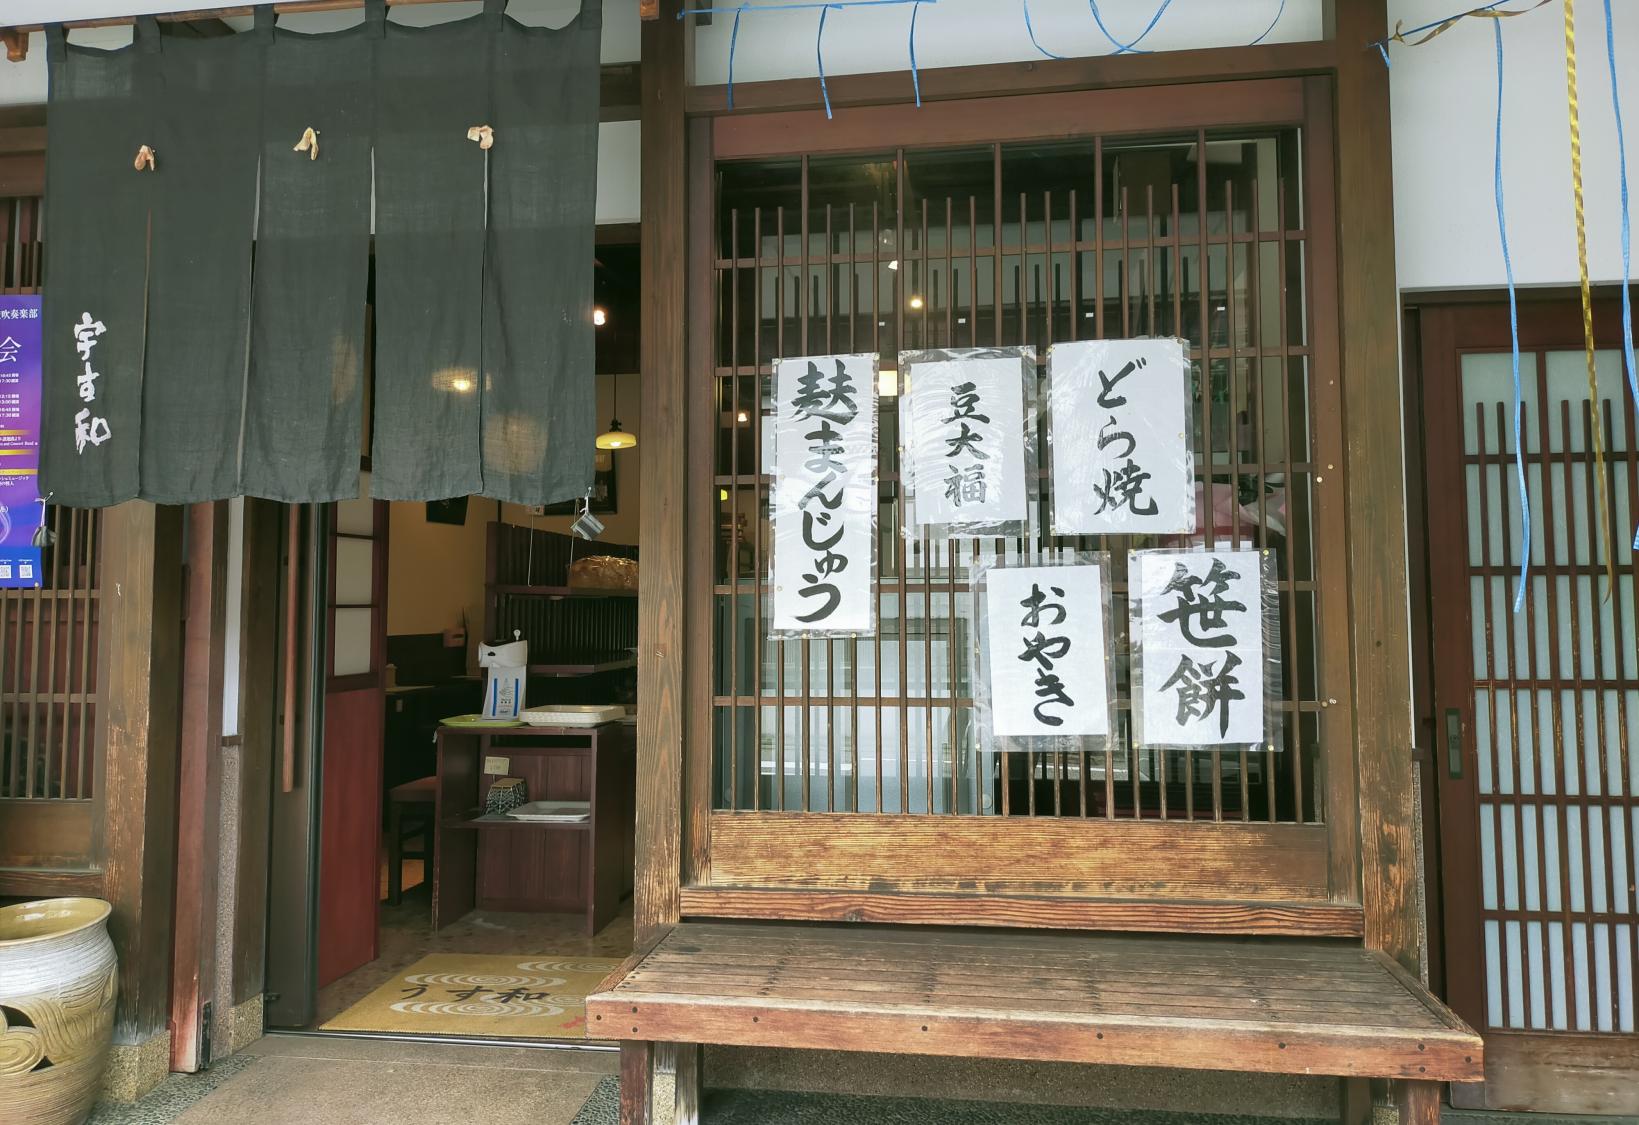 宇す和
麸まんじゅう
豆大福
どら焼
おやき
笹餅
うす和
吹奏楽部
会